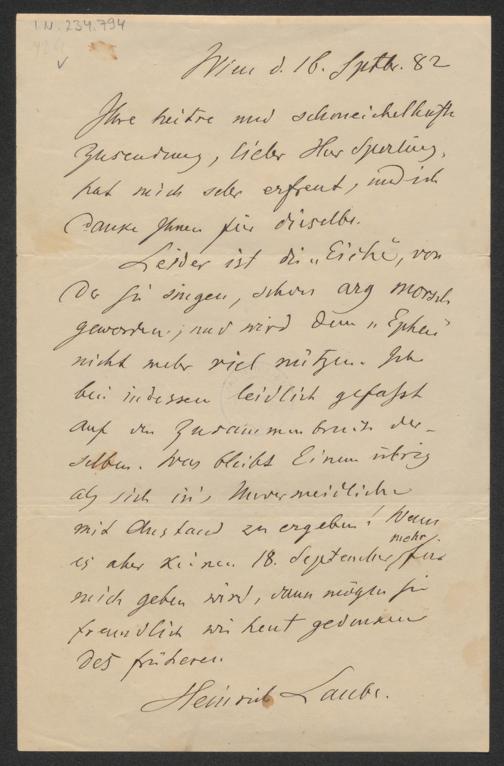 I.N. 234.794
Wien d. 16. Sptbr. 82
Ihre heitre und schmeichelhafte
Zusendung, lieber Herr Sperling,
hat mich sehr erfreut, und ich
danke Ihnen für dieselbe.
Leider ist die „Eiche“, von
der Sie singen, schon arg morsch
geworden, und wird dem „Epheu“
nicht mehr viel nützen. Ich
bin indessen leidlich gefasst
auf den Zusammenbruch der-
selben. Was bleibt Einem übrig
als sich in's Unvermeidliche
mit Anstand zu ergeben! Wenn
es aber keinen 18. September mehr für
mich geben wird, dann mögen Sie
freundlich wie heut gedenken
des früheren
Heinrich Laube.